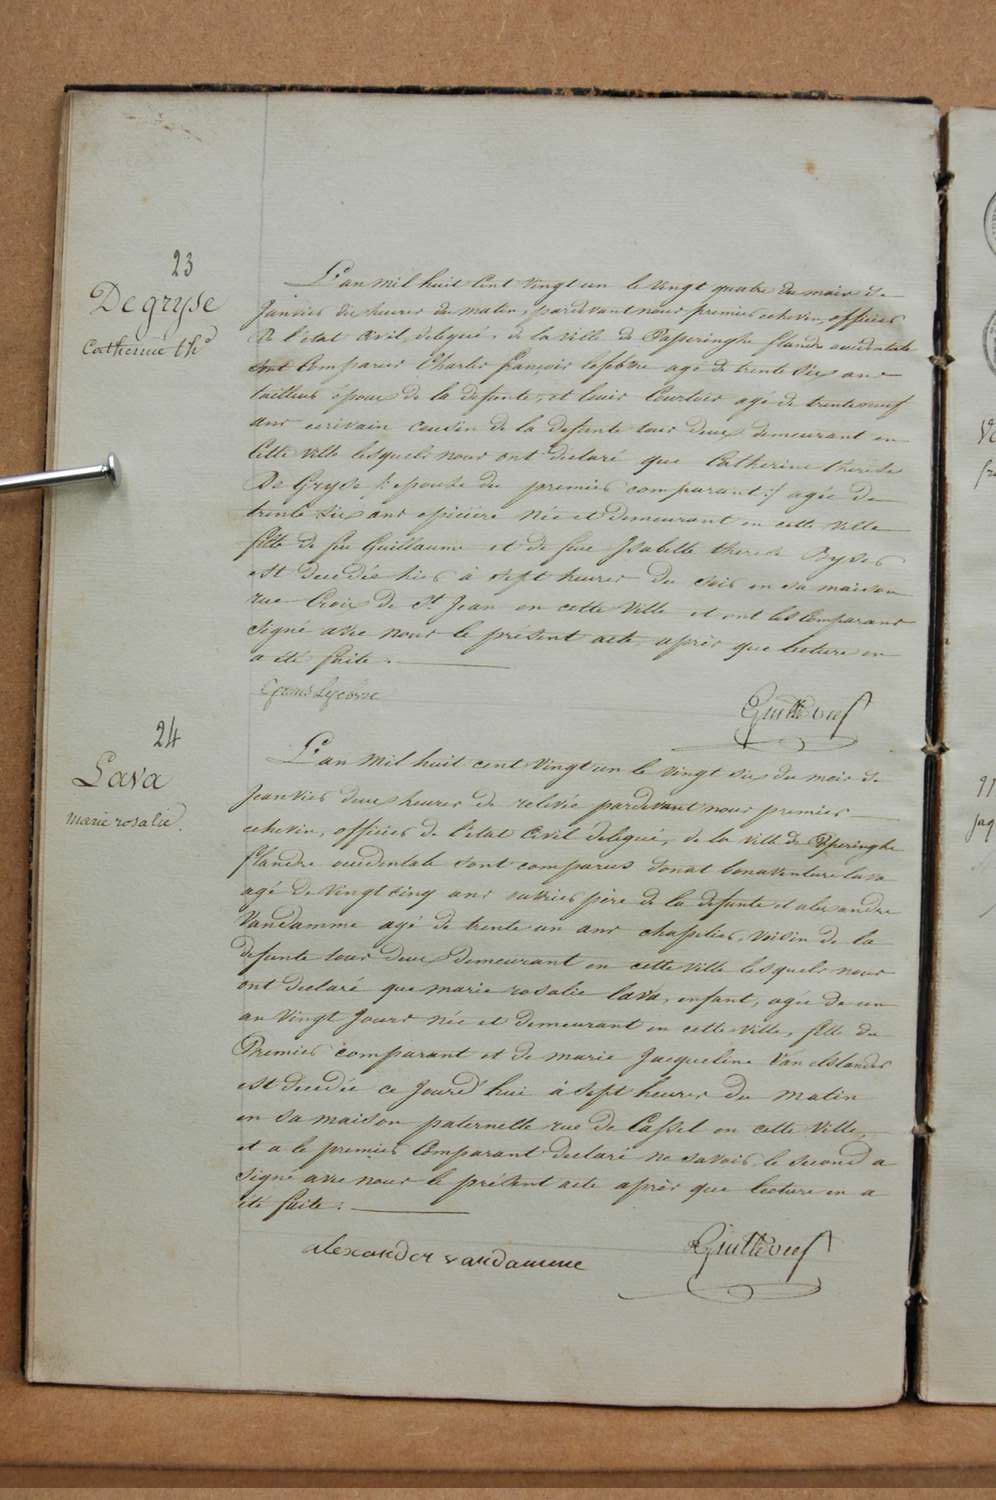 23
Degryse
Catherine th.
L'an mil huit cent vingt un le vingt quatre du mois de
Janvier dix heures du matin, pardevant nous premier echevin, officier
de l'état Civil delegué, de la ville de Poperinghe flandre occidentale
sont Comparus Charles françois lefebvre agé de trente six ans
tailleur époux de la defunte, et louis Courtois agé de trente neuf
ans ecrivain cousin de la defunte tous deux demeurant en
Cette ville lesquels nous ont declaré que Catherine therese
De Gryse /: epouse du premier comparant :/ agée de
trente six ans epiciere Née et demeurant en cette ville
fille de feu Guillaume et de feue Isabelle therese Ryser
est decedée hier à sept heures du soir en sa maison
rue Croix de St. Jean en cette Ville et ont les Comparans
Signé avec nous le présent acte, après que lecture en
a été faite.
24
Lava
marie rosalie.
L'an mil huit cent vingt un le vingt six du mois de
Janvier deux heures de relevée pardevant nous premier
echevin, officier de l'état Civil delegué, de la ville de Poperinghe
flandre occidentale sont comparus donat bonaventure lava
agé de vingt cinq ans ouvrier père de la defunte et alexandre
Vandamme agé de trente un ans chapelier, voisin de la
defunte tous deux demeurant en cette ville lesquels nous
ont declaré que marie rosalie lava, enfant, agée de un
an vingt jours née et demeurant en cette ville, fille du
Premier comparant et de marie Jacqueline Van elslander
est decedée ce jourd'hui à sept heures du matin
en sa maison paternelle rue de Cassel en cette Ville,
et a le premier Comparant declaré ne savoir, le second a
signé avec nous le présent acte après que lecture en a
été faite.
alexander vandamme